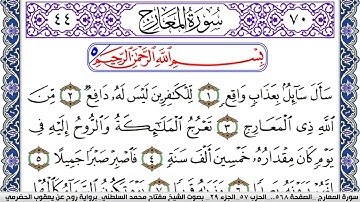 ٧٠ سُورَةُ الْمَعَارِجِ ٤٤
بِسْمِ اللَّهِ الرَّحْمَٰنِ الرَّحِيمِ
سَأَلَ سَآئِلُۢ بِعَذَابٍ وَاقِعٍ ١ لِّلْكَٰفِرِينَ لَيْسَ لَهُۥ دَافِعٌ ٢ مِّنَ
اللَّهِ ذِى الْمَعَارِجِ ٣ تَعْرُجُ الْمَلَٰٓئِكَةُ وَالرُّوحُ إِلَيْهِ فِى
يَوْمٍ كَانَ مِقْدَارُهُۥ خَمْسِينَ أَلْفَ سَنَةٍ ٤ فَاصْبِرْ صَبْرًا جَمِيلًا ٥
سورة المعارج .. الصفحة ٥٦٨ .. الحزب ٥٧ الجزء ٢٩ .. بصوت الشيخ مفتاح محمد السلطني برواية روح عن يعقوب الحضرمي